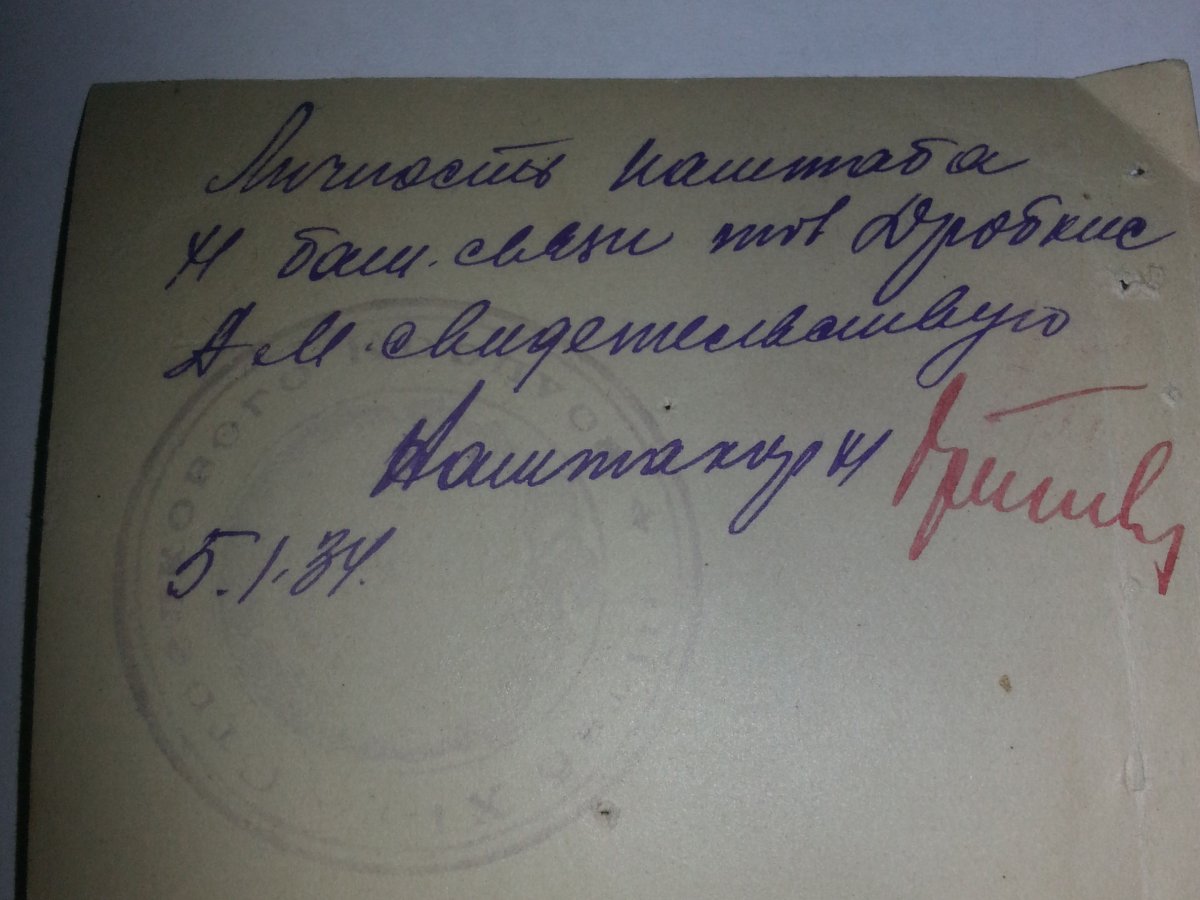 Личность наштаба
4 бат. связи тов Дробкис
А М. свидетельствую
Наштакор 4
5.I.34.
СТРЕЛКОВОГО